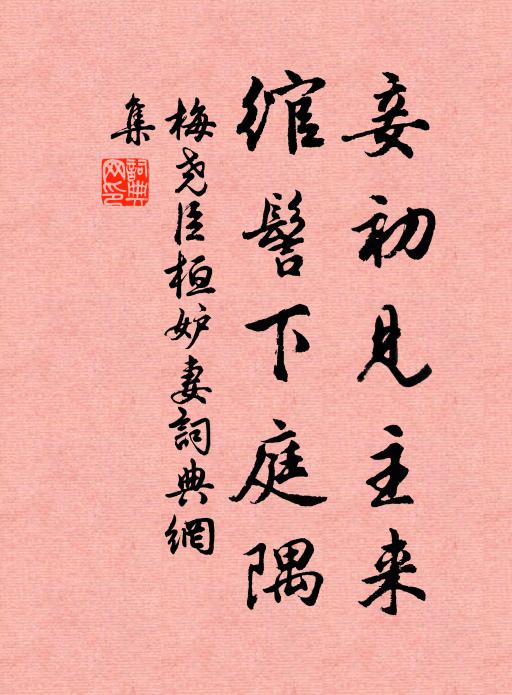 妾初見主来
綰髻下庭隅
梅尧臣桓妒妻詞典網
集
詞典网印